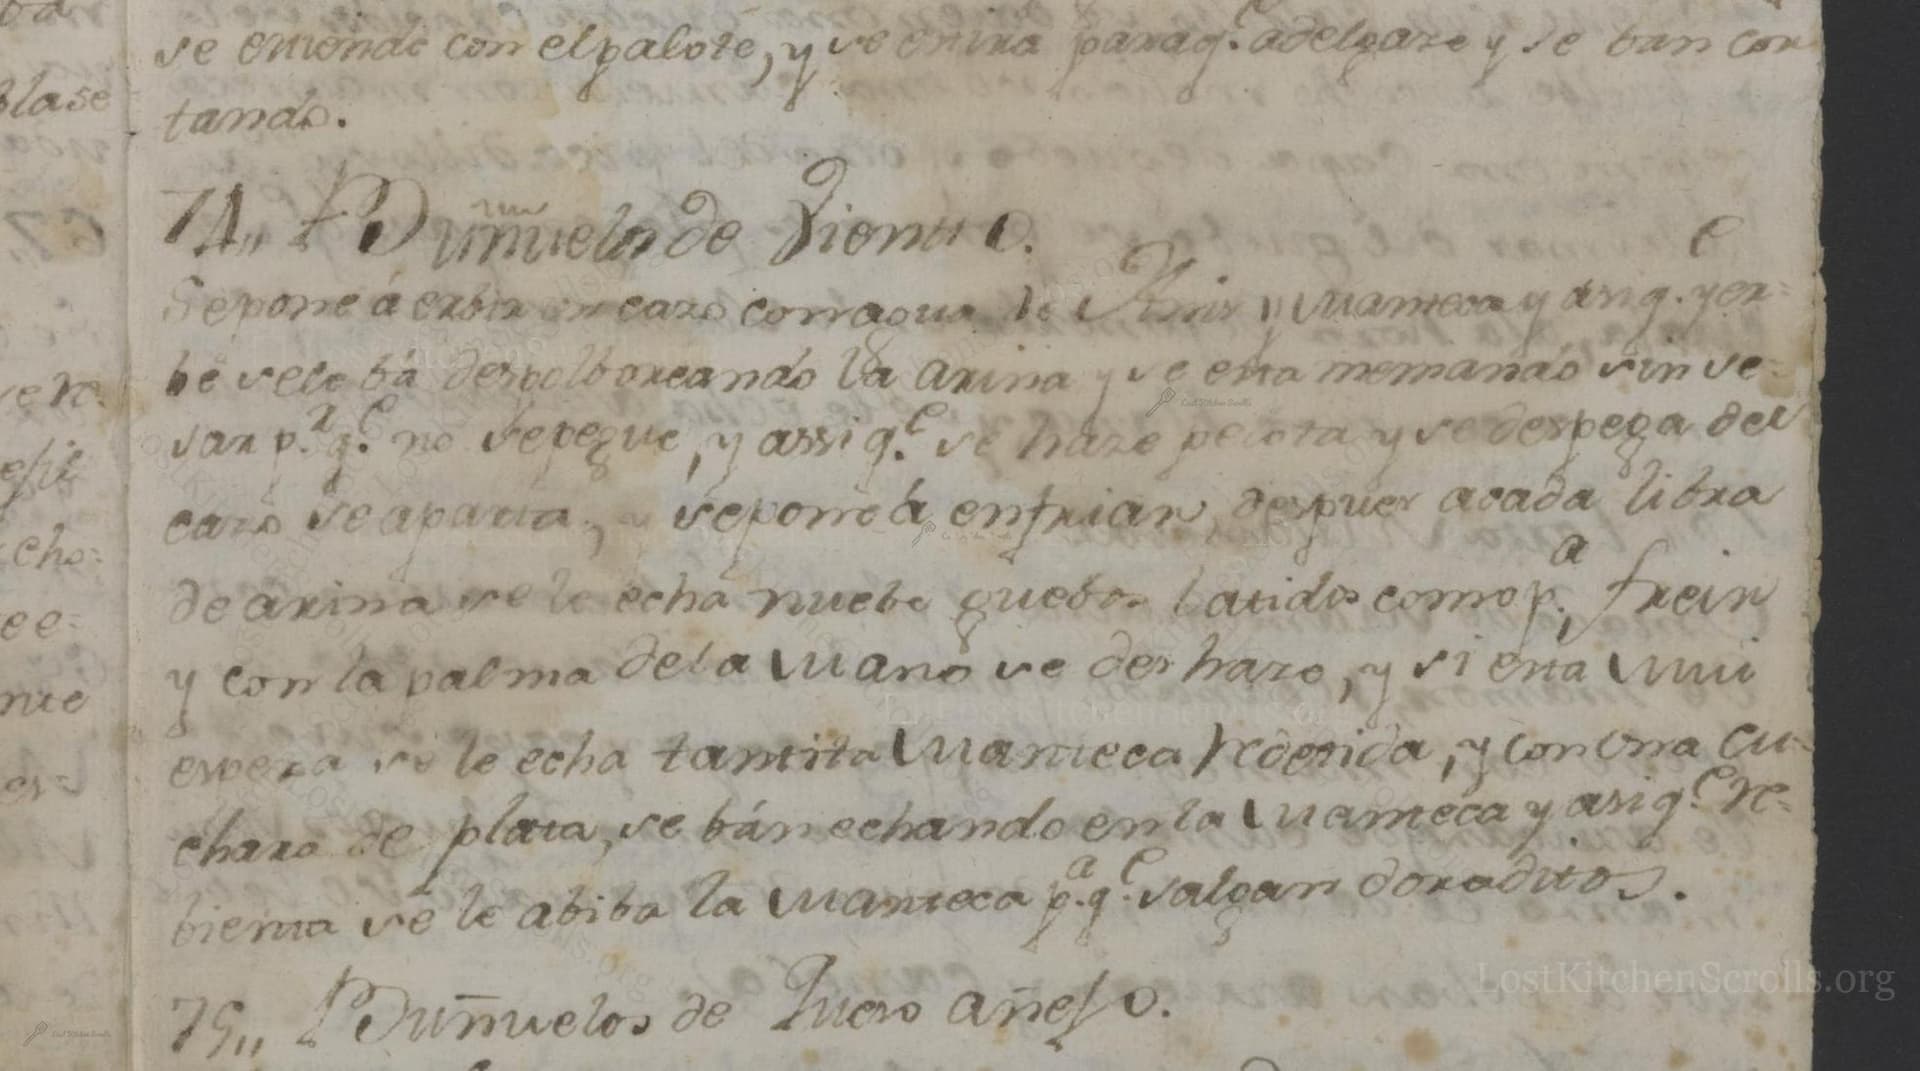 se estiende con el palote, y se estira paraq.e adelgaze y se ban cor
tando.
74,, Buñuelos de Viento.
Se pone á erbir un cazo con agua de Anis y Manteca y asi q.e yer=
be se le bá despolboreando la arina y se esta meneando sin se=
sar p.r q.e no se pegue, y assi q.e se haze pelota y se despega del
cazo se aparta, y se pone á enfriar despues acada libra
de arina se le echa nuebe guebos batidos como p.a freir
y con la palma de la Mano se des haze, y si esta Mui
espeza se le echa tantita Manteca redetida, y con una cu=
chara de plata, se bán echando en la Manteca y asi q.e re=
bienta se le abiba la Manteca p.a q.e salgan doraditos.
75,, Buñuelos de Queso añejo.
LostKitchenScrolls.org